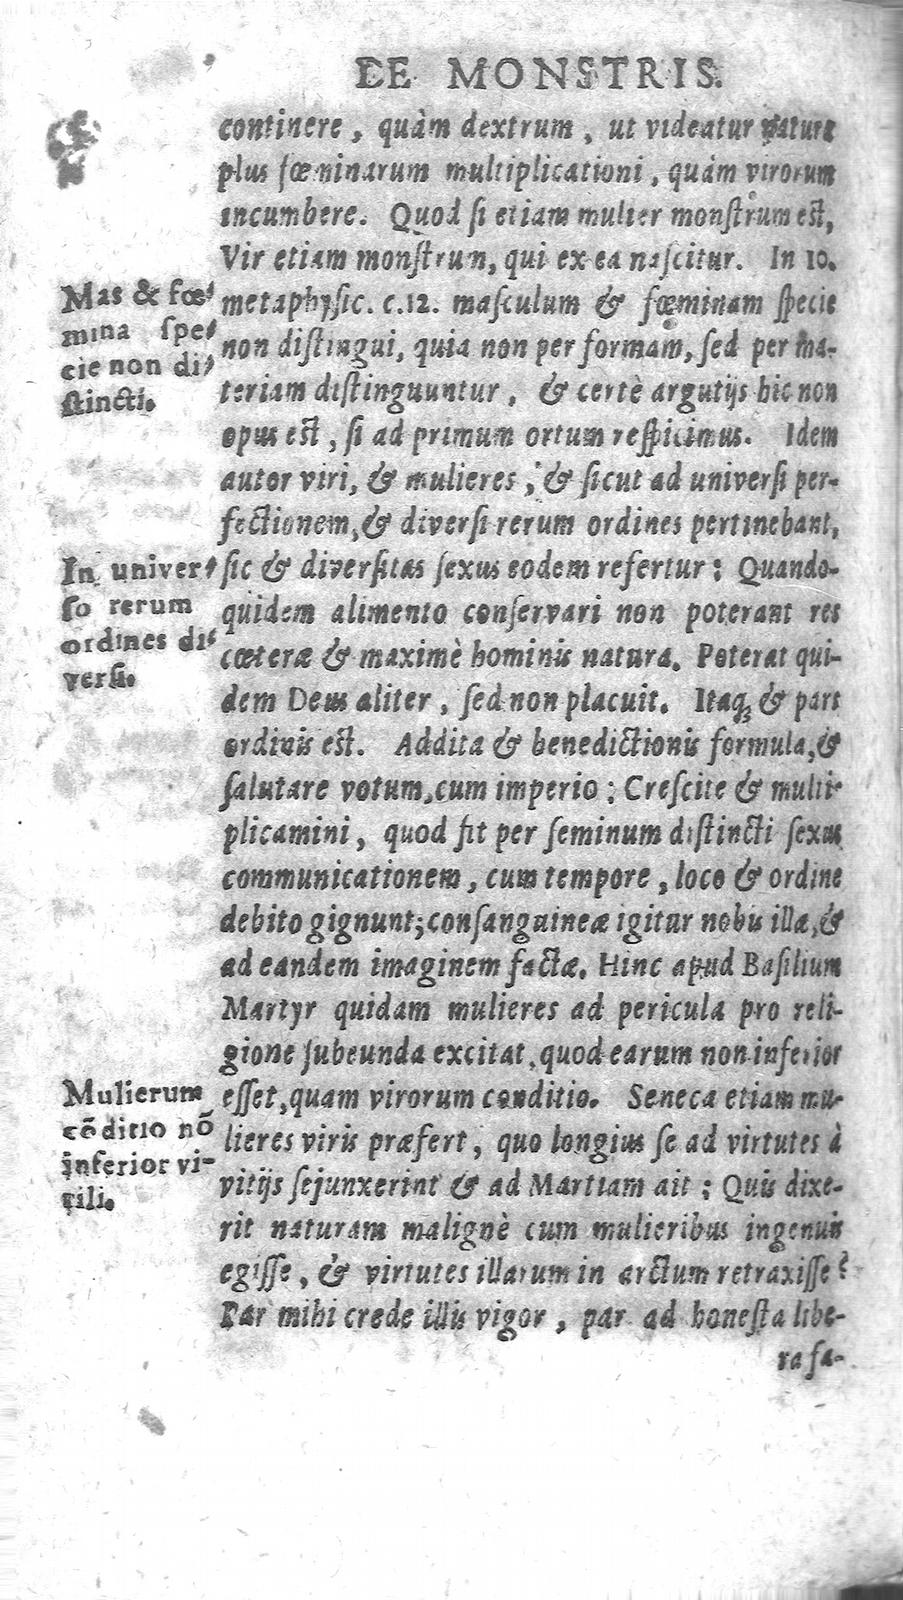 DE MONSTRIS.
continere, quàm dextrum, ut videatur natura
plus fœminarum multiplicationi, quàm virorum
incumbere. Quod ſi etiam mulier monſtrum eſt,
Vir etiam monſtrum, qui ex ea naſcitur. In 10.
metaphyſic. c.12. maſculum & fœminam ſpecie
non diſtingui, quia non per formam, ſed per ma-
teriam diſtinguuntur, & certè argutijs hic non
opus eſt, ſi ad primum ortum reſpicimus. Idem
autor viri, & mulieres, & ſicut ad univerſi per-
fectionem, & diverſi rerum ordines pertinebant,
ſic & diverſitas ſexus eodem refertur: Quando-
quidem alimento conſervari non poterant res
cœteræ & maximè hominis natura. Poterat qui-
dem Deus aliter, ſed non placuit. Itaq; & pars
ordinis eſt. Addita & benedictionis formula, &
ſalutare votum, cum imperio: Creſcite & multi-
plicamini, quod fit per ſeminum diſtincti ſexus
communicationem, cum tempore, loco & ordine
debito gignunt; conſanguineæ igitur nobis illæ, &
ad eandem imaginem factæ. Hinc apud Baſilium
Martyr quidam mulieres ad pericula pro reli-
gione ſubeunda excitat, quod earum non inferior
eſſet, quam virorum conditio. Seneca etiam mu-
lieres viris præfert, quo longius ſe ad virtutes à
vitijs ſejunxerint & ad Martiam ait: Quis dixe-
rit naturam malignè cum mulieribus ingenuis
egiſſe, & virtutes illarum in arctum retraxiſſe?
Par mihi crede illis vigor, par ad honeſta libe-
ra fa-
Mas & fœ-
mina ſpe-
cie non di-
ſtincti.
In univer-
ſo rerum
ordines di-
verſi.
Mulierum
cõditio nõ
inferior vi-
rili.